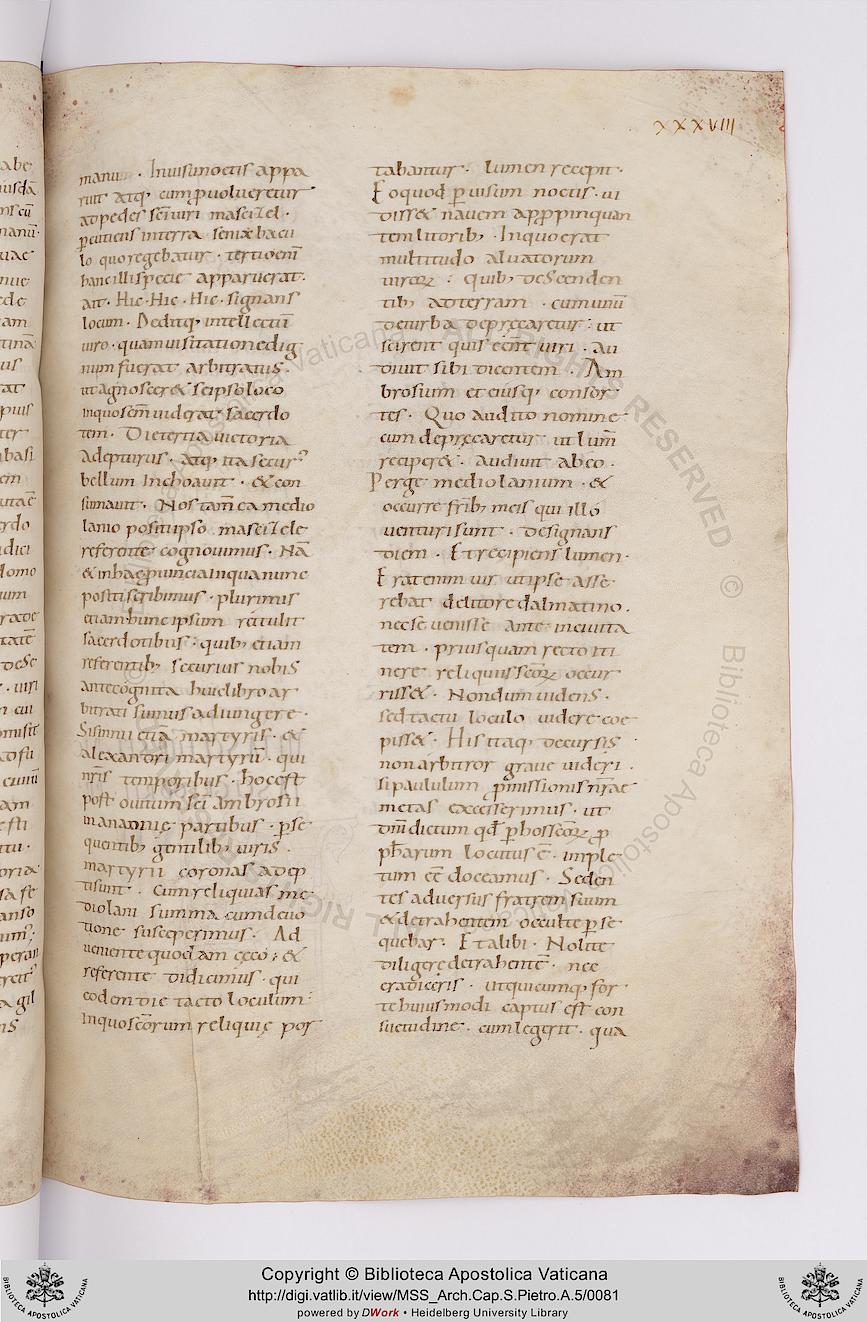 XXXVIII
manum . Inuisunoctis appa
ruit atq; cum puolueretur
adpedes sc̄iuiri mascizel .
pcutiens interra seniae bacu
lo quoregebatur . tertio eni
hanc illi specie apparuerat .
ait . Hic . Hic . Hic . signans
locum . Deditq; intellectū
uiro . quamuisitationedig
num fuerat arbitratus .
ut agnosceret seipso loco
inquo sc̄m uiderat sacerdo
tem . Die tertia uictoria
adepturus . atq; ita securus
bellum Inchoauit . & con
sumauit . Nos tam̄ ea medio
lanio positiipso mascizele
referente cognouimus . Nā
& inhac puincia inqua nunc
positi scribimus . plurimis
etiam hunc ipsum retulit
sacerdotibus . quib; etiam
referentib; securius nobis
antecognita huic libro ar
bitrati sumus adiungere .
Sisinnii etiā martyris . &
alexandri martyriū . qui
nr̄is temporibus . hocest
post ouitum sc̄i ambrosii
inananie partibus . pse
quentib; gentilib; uiris .
martyrii coronas adep
tisunt . cum reliquias me
diolani summa cumdeuo
tione susceperimus . Ad
ueniente quodam ceco ; &
referente didicimus . qui
eodem die tacto loculum
inquo sc̄orum reliquię por
tabantur . lumen recepit .
Eo quod p uisum noctis . ui
disset nauem appropinquan
tem litorib; . Inquo erat
multitudo alvatorum
uirorum : quib; descenden
tib; adterram . cum unū
deturba deprecaretur : ut
scirent quis eēnt uiri . au
diuit sibi dicentem . Am
brosium et eiusq; consor
tes . Quo audito nomine
cum deprecaretur ut lum̄
reciperet . audiuit abeo .
Perge mediolanium . &
occurre fr̄ib; meis qui illó
uenturi sunt . designans
diem . Et recipiens lumen .
Erat enim uir ut ipse asse
rebat delitore dalmatino .
nec se uenisse ante inciuita
tem . priusquam recto iti
nere reliquiis sc̄orum occur
risset . Nondum uidens .
sed tactu loculo uidere coe
pisset . His itaq; decursis
non arbitror graue uideri .
si paululum pmissionis nr̄ae
metas excesserimus . ut
dn̄i dictum qd̄ p hos sc̄orum p
phetarum locutus ē . imple
tum eē doceamus . Seden
tes aduersus fratrem suum
& detrahentem occulte pse
quebar . Et alibi . Nolite
diligere detrahentē . nec
eradiceris . utquicumq; for
te huiusmodi captus est con
suetudine . cum legerit . qua
Copyright © Biblioteca Apostolica Vaticana
http://digi.vatlib.it/view/MSS_Arch.Cap.S.Pietro.A.5/0081
powered by DWork • Heidelberg University Library